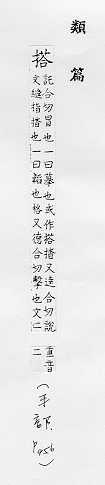 類篇
搭
託合切冒也一曰摹也或作搨搭又達合切說
文縫指搭也一曰韜也搭又德合切擊也文二
重音
二
(手部, P456)